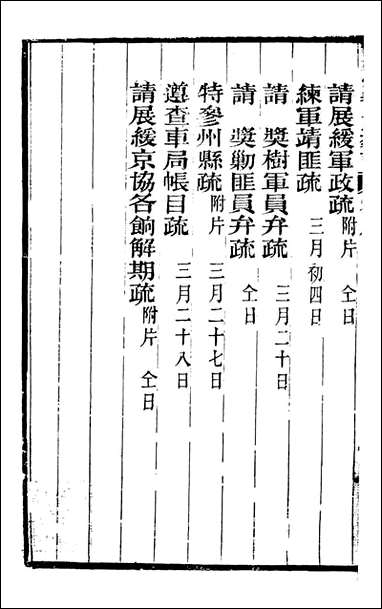 請展緩軍政疏附片 仝日
練軍靖匪疏 三月初四日
請 獎樹軍員弁疏 三月二十日
請 獎勦匪員弁疏 仝日
特參州縣疏附片 三月二十七日
遵查車局帳目疏 三月二十八日
請展緩京協各餉解期疏附片 仝日